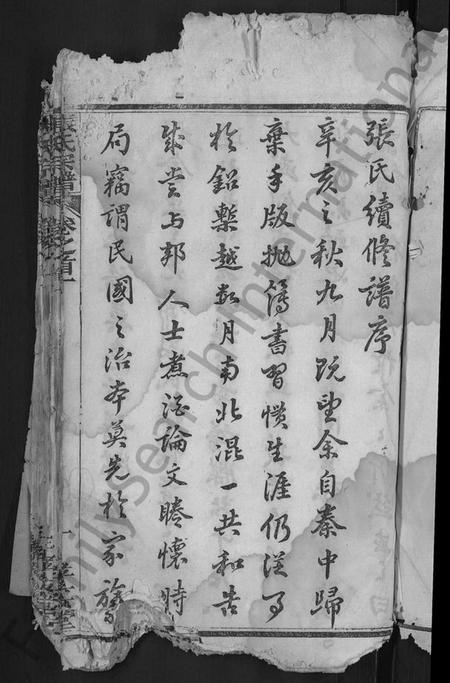 張氏續修譜序
辛亥之秋九月既望余自秦中歸
棄手版拋簿書習慣生涯仍從事
於鉛槧越數月南北混一共和告
成嘗與邦人士煮酒論文睠懷時
局竊謂民國之治本莫先於家族
張氏宗譜 卷之首
FamilySearch International